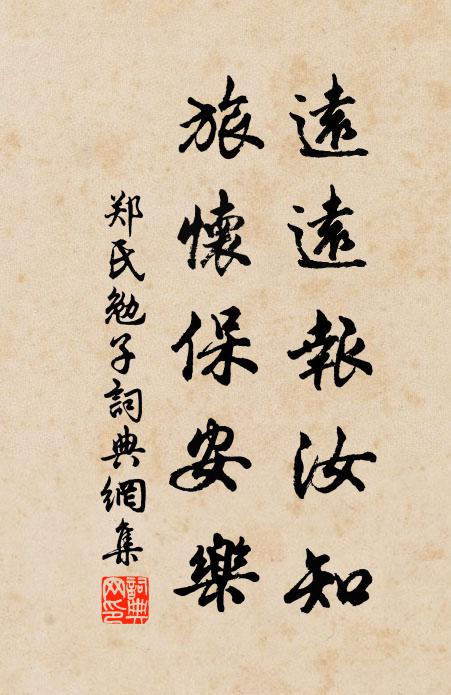 遠遠報汝知
旅懷保安樂
郑氏勉子詞典網集
詞典网印